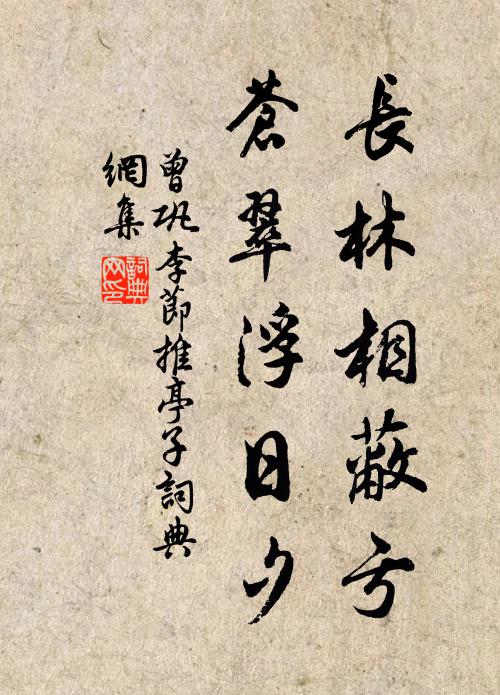 長林相蔽亏
蒼翠浮日夕
曾巩李節推亭子詞典
網集
詞典
网印